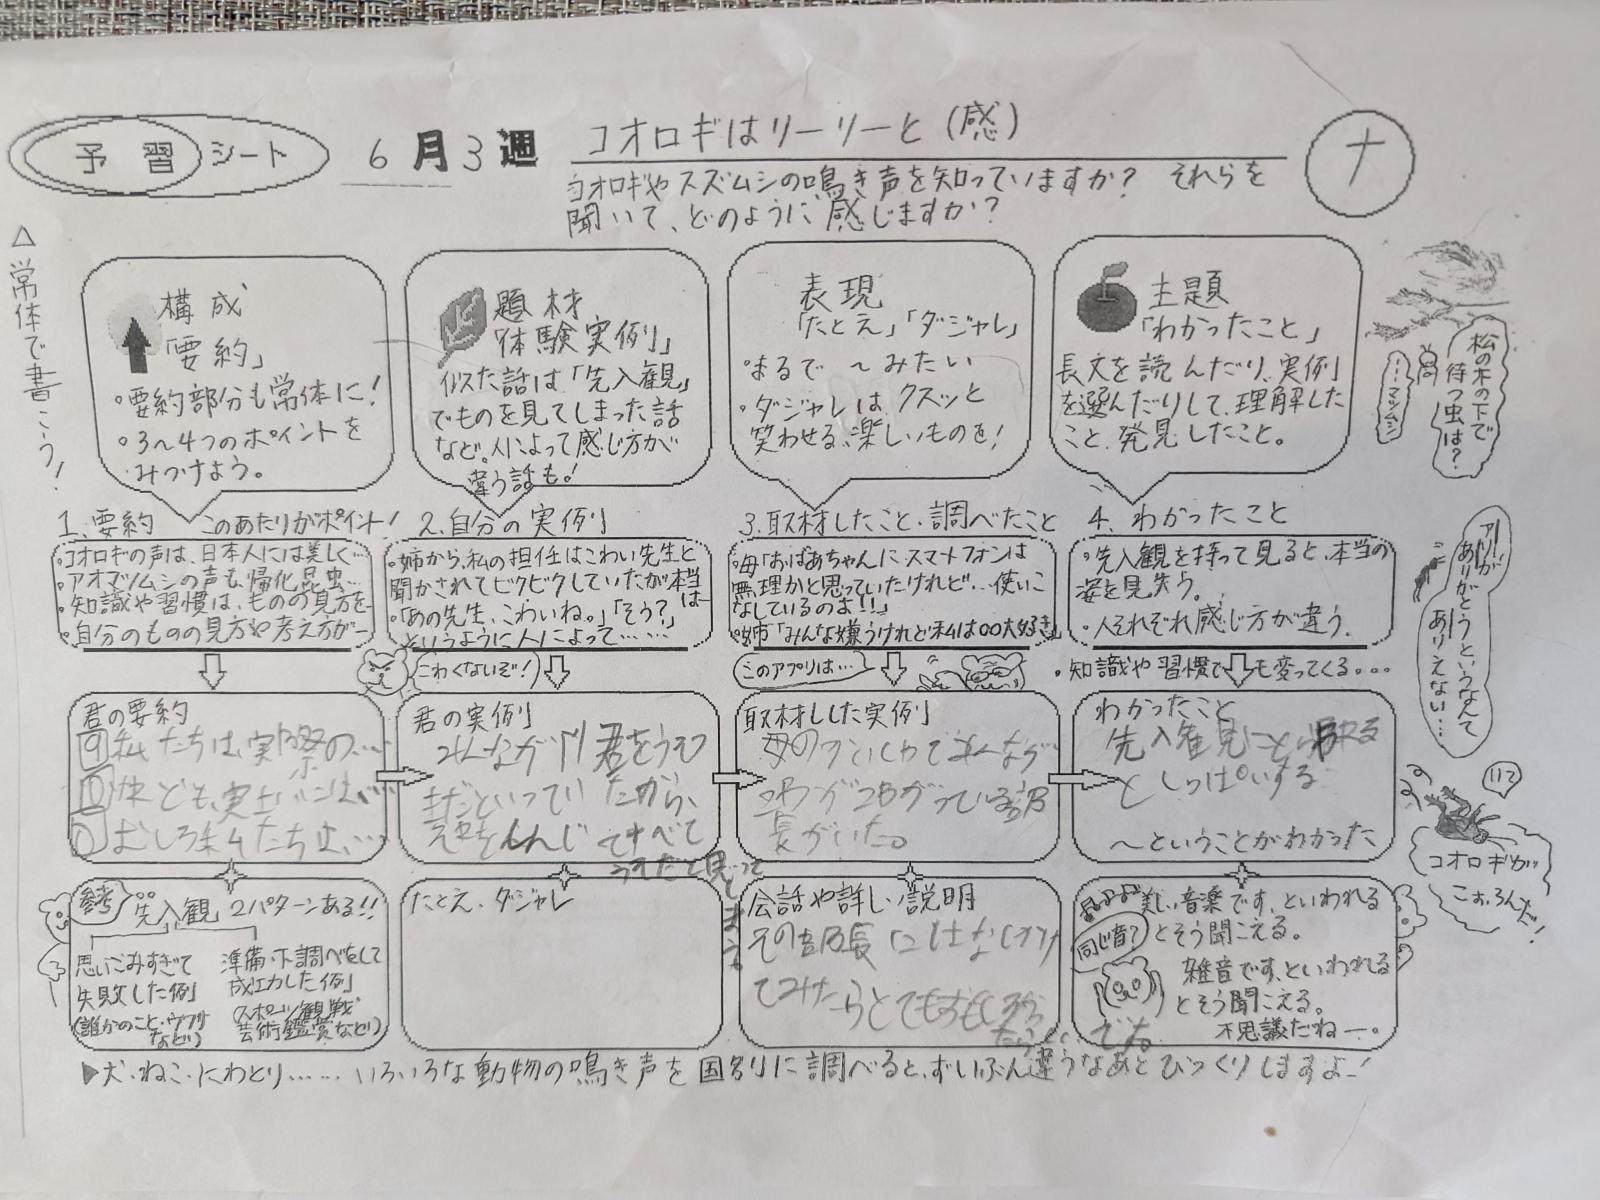 予習シート
6月3週
コオロギはリーリーと（感）
ナ
コオロギやスズムシの鳴き声を知っていますか？ それらを
聞いて、どのように感じますか？
△常体で書こう！
構成
「要約」
・要約部分も常体に！
・3〜4つのポイントを
みつけよう。
題材
「体験実例」
似た話は「先入観」
でものを見てしまった話
など。人によって感じ方が
違う話も！
表現
「たとえ」「ダジャレ」
・まるで 〜みたい
・ダジャレは クスッと
笑わせる、楽しいものを！
主題
「わかったこと」
長文を読んだり、実例
を選んだりして、理解した
こと、発見したこと。
松の木の下で
待つ虫は？
…マツムシ
1. 要約 このあたりがポイント！
・コオロギの声は、日本人には美しく…
・アオマツムシの声も、帰化昆虫…
・知識や習慣は、ものの見方を…
・自分のものの見方や考え方が…
2. 自分の実例
・姉から、私の担任はこわい先生と
聞かされてビクビクしていたが本当は
・「あの先生、こわいね。」「そう？」
というように人によって……
こわくないぞ！
3. 取材したこと・調べたこと
・母「おばあちゃんにスマートフォンは
無理かと思っていたけれど…使いこ
なしているのよ！！」
・姉「みんな嫌うけれど私は○○大好き」
このアプリは…
4. わかったこと
・先入観を持って見ると、本当の
姿を見失う。
・人それぞれ感じ方が違う。
・知識や習慣でも変ってくる…
アリが
ありがとうというなんて
ありえない…
君の要約
9 私たちは、実際の…
10 けども、実さいには…
むしろ私たちは、…
君の実例
みんなが
君をうそ
だといっていたから、
すべて
うそだと思って
しまう
取材した実例
母の
みんなが
こわがっている部
長がいた。
わかったこと
先入観
としっぱいする
〜ということがわかった
コオロギが
こおろんだ！
参考
先入観 2パターンある！！
思いこみすぎて
失敗した例
（誰かのこと・ウワサ
など）
準備・下調べをして
成功した例
（スポーツ観戦
芸術鑑賞など）
たとえ、ダジャレ
会話や詳しい説明
その部長にはなしかけ
てみたらとてもおもしろ
美しい音楽です、といわれる
とそう聞こえる。
同じ音？
雑音です、といわれる
とそう聞こえる。
不思議だねー。
▶犬・ねこ・にわとり……いろいろな動物の鳴き声を国別に調べると、ずいぶん違うなあとびっくりしますよー！